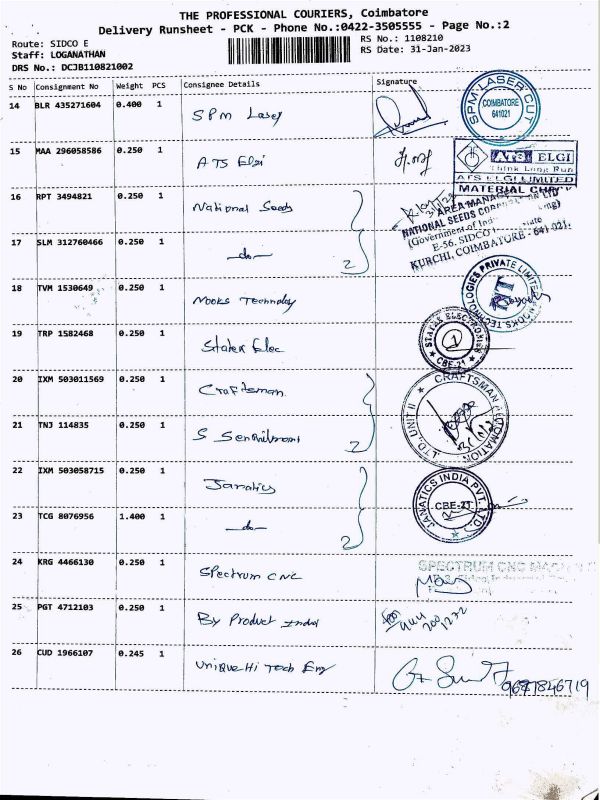 THE PROFESSIONAL COURIERS, Coimbatore
Delivery Runsheet - PCK - Phone No.:0422-3505555 - Page No.:2
Route: SIDCO E
RS No.: 1108210
Staff: LOGANATHAN
RS Date: 31-Jan-2023
DRS No.: DCJB110821002
S No Consignment No Weight PCS Consignee Details Signature
14 BLR 435271604 0.400 1 SPM Laser
SPM LASER CUT
COIMBATORE
641021
15 MAA 296058586 0.250 1 ATS Elgi
ATS ELGI
Think Long Run
ATS ELGI LIMITED
MATERIAL
16 RPT 3494821 0.250 1 National Seeds
AREA MANAGER
NATIONAL SEEDS
(Government of
E-56, SIDCO
KURCHI, COIMBATORE - 641 021.
17 SLM 312760466 0.250 1 -do- 2
18 TVM 1530649 0.250 1 Nooks Technology
NOOKS TECHNOLOGIES PRIVATE LIMITED
19 TRP 1582468 0.250 1 Statex Elec
CBE-21
20 IXM 503011569 0.250 1 Craftsman
CRAFTSMAN AUTOMATION LTD., UNIT II
21 TNJ 114835 0.250 1 S 2
22 IXM 503058715 0.250 1 Janatics
JANATICS INDIA PVT. LTD.
CBE-21
23 TCG 8076956 1.400 1 -do- 2
24 KRG 4466130 0.250 1 Spectrum CNC
SPECTRUM CNC
25 PGT 4712103 0.250 1 By Product
26 CUD 1966107 0.245 1 Unique Hi Tech Eng